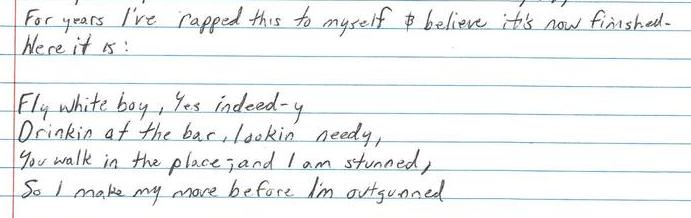 For years I've rapped this to myself & believe it's now finished.
Here it is:
Fly white boy, Yes indeed-y
Drinkin at the bar, lookin needy,
You walk in the place; and I am stunned,
So I make my move before I'm outgunned